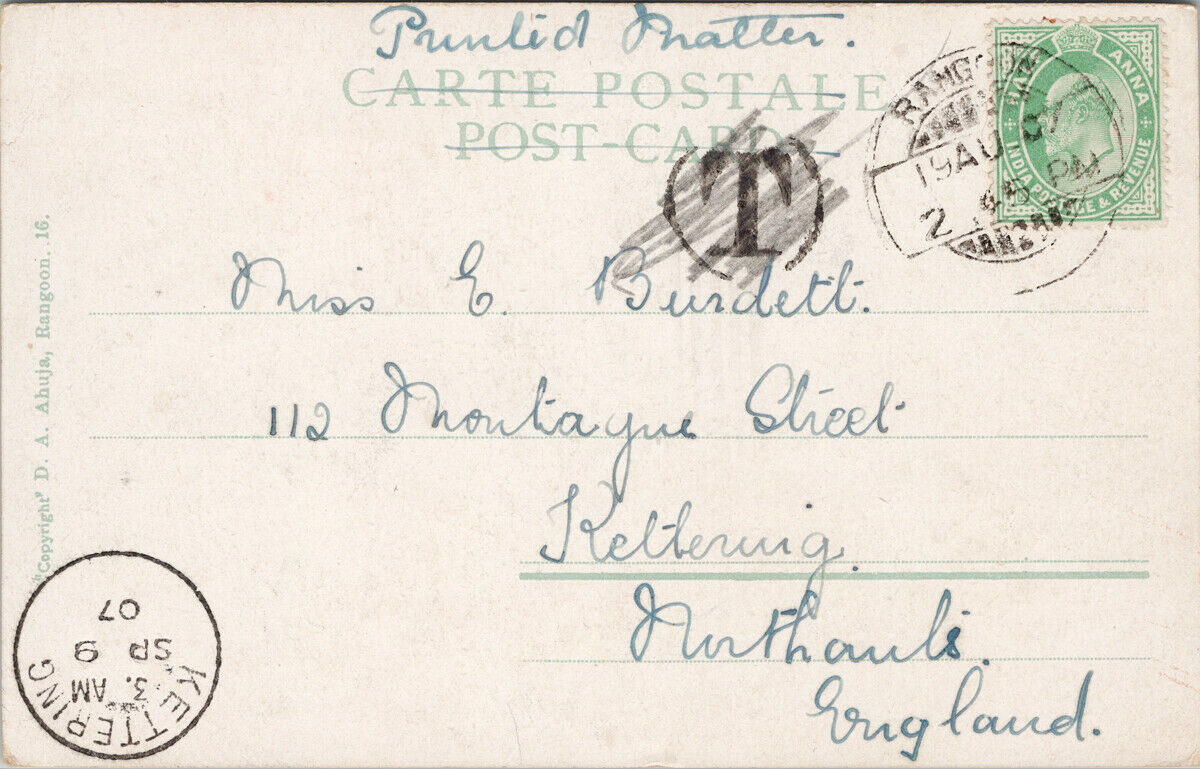 Printed Matter.
CARTE POSTALE
POST-CARD.
T
RANGOON
19 AU 07
2 45 PM
HALF ANNA
INDIA POSTAGE & REVENUE
Miss E Burdett.
112 Montague Street
Kettering.
Northants.
England.
"Copyright" D. A. Ahuja, Rangoon. 16.
KETTERING
3. AM
SP 9
07